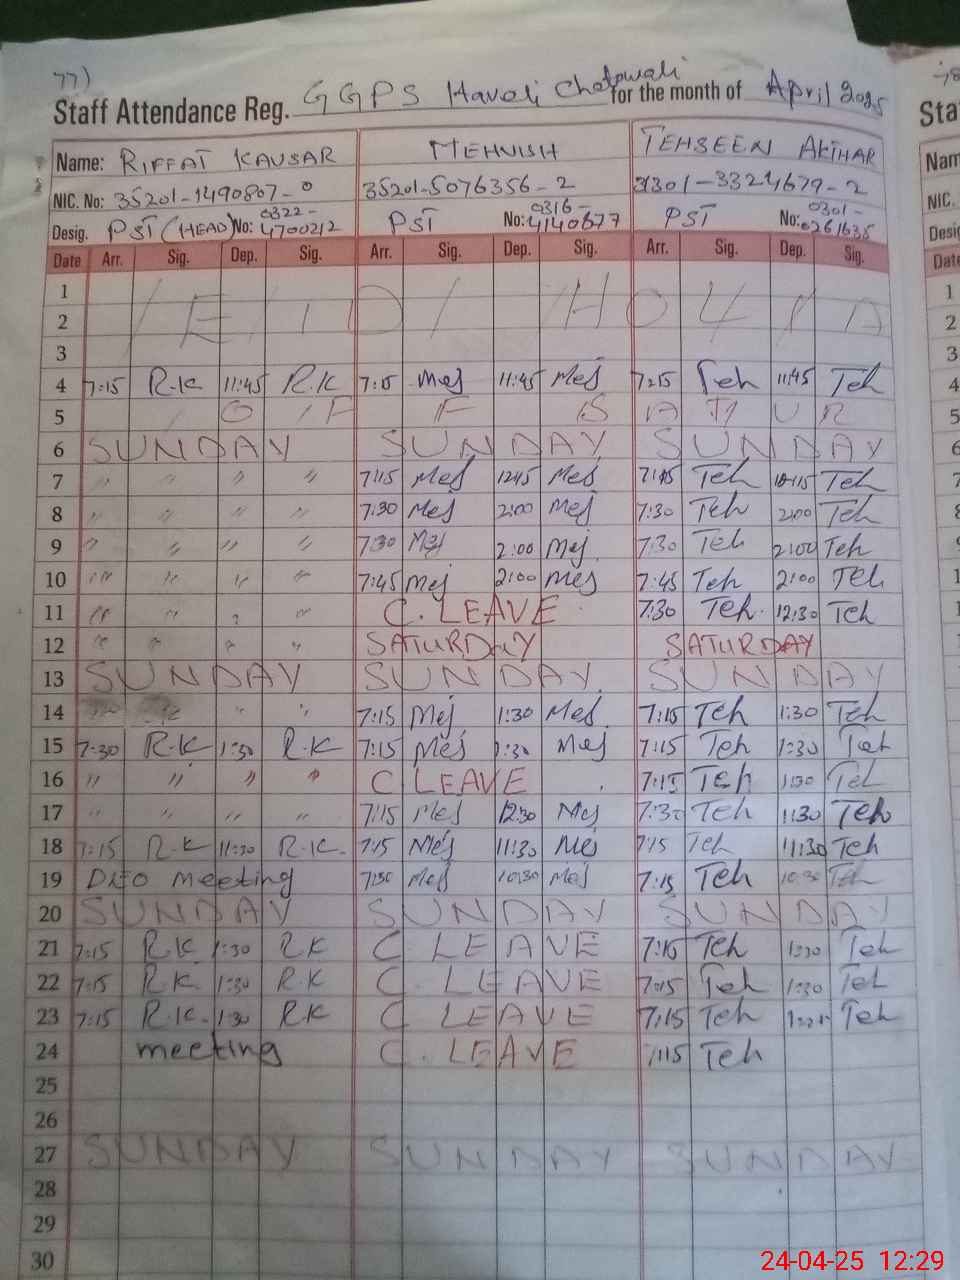 77)
Staff Attendance Reg. GGPS Haveli for the month of April 2025
Name: RIFFAT KAUSAR MEHVISH TEHSEEN AKTHAR
NIC. No: 35201-1490807-0 35201-5076356-2 31301-3324679-2
Desig. PST (HEAD) No: 0322-4700212 PST No: 0316-4140677 PST No: 0301-0261635
Date Arr. Sig. Dep. Sig. Arr. Sig. Dep. Sig. Arr. Sig. Dep. Sig.
1
2 EID
3
4 7:15 R.K 11:45 R.K 7:15 Mej 11:45 Mej 7:15 Teh 11:45 Teh
5 OFF SATUR
6 SUNDAY SUNDAY SUNDAY
7 " " " " 7:15 Mej 12:45 Mej Teh Teh
8 " " " " 7:30 Mej 2:00 Mej 7:30 Teh 2:00 Teh
9 " " " " 7:30 Mej 2:00 Mej 7:30 Teh 2:00 Teh
10 " " " " 7:45 Mej 2:00 Mej 7:45 Teh 2:00 Teh
11 " " " " C. LEAVE 7:30 Teh 12:30 Teh
12 " " " " SATURDAY SATURDAY
13 SUNDAY SUNDAY SUNDAY
14 " " 7:15 Mej 1:30 Mej 7:15 Teh 1:30 Teh
15 7:30 R.K 1:30 R.K 7:15 Mej 1:30 Mej 7:15 Teh 1:30 Teh
16 " " " " C LEAVE 7:15 Teh 1:30 Teh
17 " " " " 7:15 Mej 12:30 Mej 7:30 Teh 1:30 Teh
18 7:15 R.K 11:30 R.K. 7:15 Mej 11:30 Mej 7:15 Teh 11:30 Teh
19 DEO meeting 7:30 Mej 10:30 Mej 7:15 Teh 10:30 Teh
20 SUNDAY SUNDAY SUNDAY
21 7:15 R.K 1:30 RK C LEAVE 7:15 Teh 1:30 Teh
22 7:15 R.K. 1:30 R.K C. LEAVE 7:15 Teh 1:30 Teh
23 7:15 R.K. 1:30 RK C LEAVE 7:15 Teh Teh
24 meeting C. LEAVE 7:15 Teh
25
26
27 SUNDAY SUNDAY SUNDAY
28
29
30
24-04-25 12:29